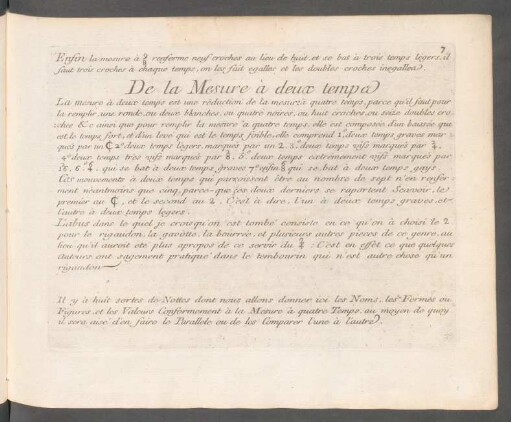 7
Enfin la mesure à 9/8 renferme neuf croches au lieu de huit, et se bat à trois temps legers, il
faut trois croches à chaque temps, on les fait egalles et les doubles croches inegalles.
De la Mesure à deux temps
La mesure à deux temps est une réduction de la mesure à quatre temps, parce qu'il faut pour
la remplir une ronde, ou deux blanches, ou quatre noires, ou huit croches, ou seize doubles cro-
ches &c ainsi que pour remplir la mesure à quatre temps; elle est composée d'un baissée qui
est le temps fort, et d'un levé qui est le temps foible, elle comprend 1° deux temps graves mar-
qués par un ₵ 2° deux temps legers, marqués par un 2. 3° deux temps vifs marqués par 2/4.
4° deux temps très vifs marqués par 5° deux temps extrêmement vifs marqués par
6° qui se bat à deux temps graves 7° enfin qui se bat à deux temps gays.
Ces mouvements à deux temps qui paroissent être au nombre de sept n'en renfer-
ment néantmoins que cinq, parce que les deux derniers se raportent Scavoir, le
premier au ₵, et le second au 2. C'est à dire, l'un à deux temps graves, et
l'autre à deux temps legers.
L'abus dans le quel je crois qu'on est tombé consiste en ce qu'on a choisi le 2
pour le rigaudon, la gavotte, la bourrée, et plusieurs autres pieces de ce genre, au
lieu qu'il auroit eté plus apropos de ce servir du 2/4. C'est en effet ce que quelques
auteurs ont sagement pratiqué dans le tambourin qui n'est autre chose qu'un
rigaudon
Il y à huit sortes de Nottes dont nous allons donner ici les Noms, les Formes ou
Figures, et les Valeurs Conformément à la Mesure à quatre Temps, au moyen de quoy
il sera aisé d'en faire le Parallele ou de les Comparer l'une à l'autre.